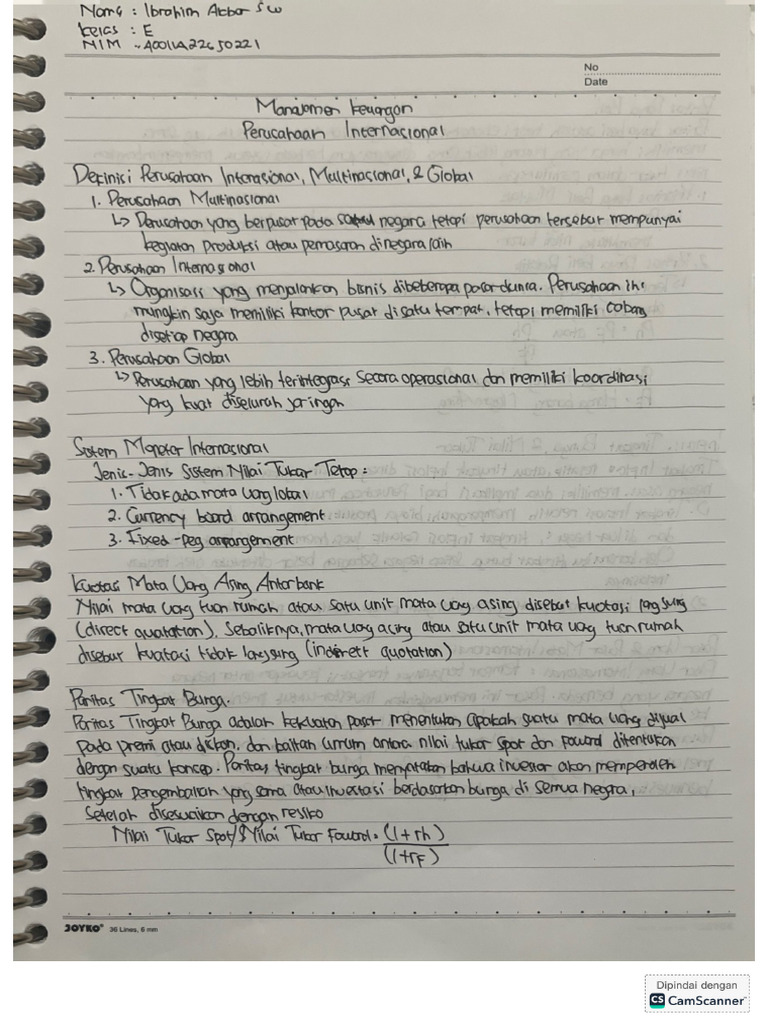 Nama : Ibrahim Akbar SW
Kelas : E
NIM
No
Date
Manajemen Keuangan
Perusahaan Internasional
Definisi Perusahaan Interasional, Multinasional, & Global
1. Perusahaan Multinasional
↳ Perusahaan yang berpusat pada negara tetapi perusahaan tersebut mempunyai
kegiatan produksi atau pemasaran di negara lain
2. Perusahaan Internasional
↳ Organisasi yang menjalankan bisnis dibeberapa pasar dunia. Perusahaan ini
mungkin saja memiliki kantor pusat disatu tempat, tetapi memiliki cabang
disetiap negara
3. Perusahaan Global
↳ Perusahaan yang lebih terintegrasi secara operasional dan memiliki koordinasi
yang kuat diseluruh jaringan
Sistem Moneter Internasional
Jenis-Jenis Sistem Nilai Tukar Tetap :
1. Tidak ada mata uang lokal
2. Currency board arrangement
3. Fixed-peg arrangement
Kuotasi Mata Uang Asing Antarbank
Nilai mata uang tuan rumah atau satu unit mata uang asing disebut kuotasi langsung
(direct quotation). Sebaliknya, mata uang asing atau satu unit mata uang tuan rumah
disebut kuotasi tidak langsung (indirett quotation)
Paritas Tingkat Bunga.
Paritas Tingkat Bunga adalah kekuatan pasar menentukan apakah suatu mata uang dijual
pada premi atau diskon, dan kaitan umum antara nilai tukar spot dan foward ditentukan
dengan suatu konsep. Paritas tingkat bunga menyatakan bahwa investor akan memperoleh
tingkat pengembalian yang sama atau investasi berdasarkan bunga di semua negra,
Setelah disesuaikan dengan resiko
Nilai Tukar Spot/Nilai Tukar Foward = (1+rh)
(1+rF)
JOYKO® 36 Lines, 6 mm
Dipindai dengan
CS CamScanner